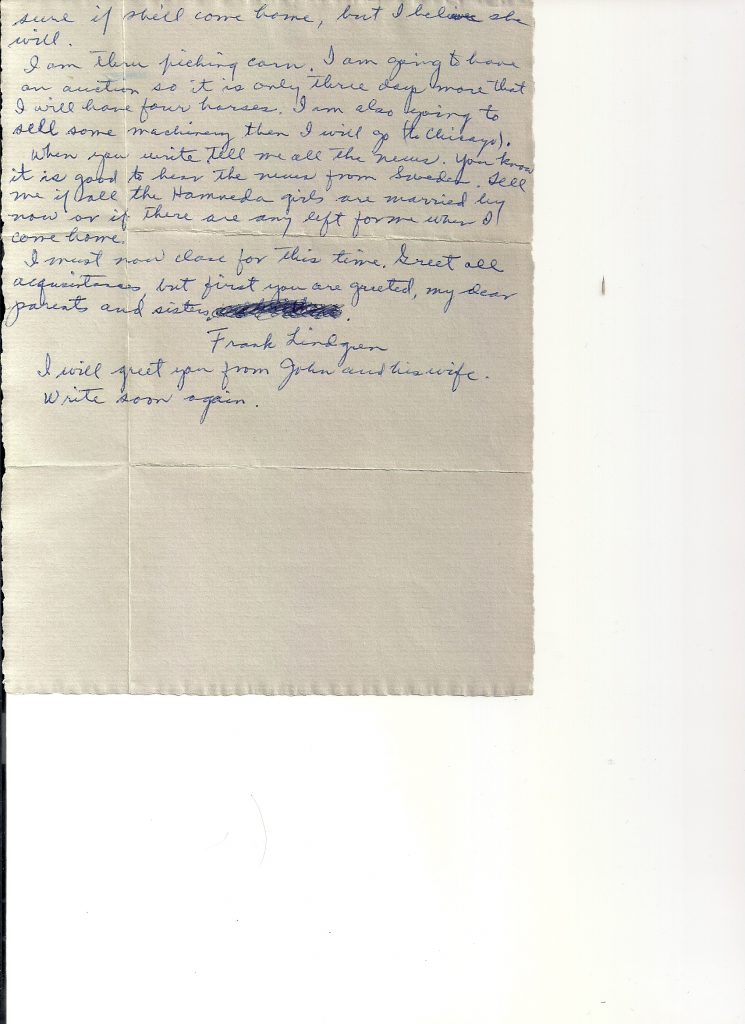 sure if she'll come home, but I believe she
will.
I am thru picking corn. I am going to have
an auction so it is only three days more that
I will have four horses. I am also going to
sell some machinery then I will go (to Chicago).
When you write tell me all the news. You know
it is good to hear the news from Sweden. Tell
me if all the Hamneda girls are married by
now or if there are any left for me when I
come home.
I must now close for this time. Greet all
acquistances, but first you are greeted, my dear
parents and sisters
Frank Lindgren
I will greet you from John and his wife.
Write soon again.